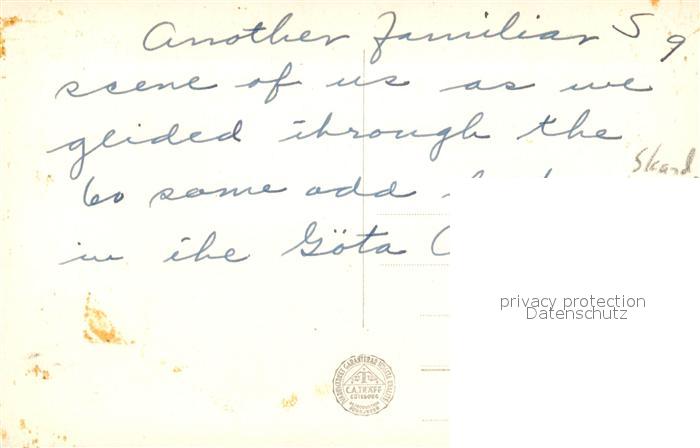 Another familiar S 9
scene of us as we
glided through the
Skand.
60 some odd
in the Göta
privacy protection
Datenschutz
C.A. TRÄFF
GÖTEBORG